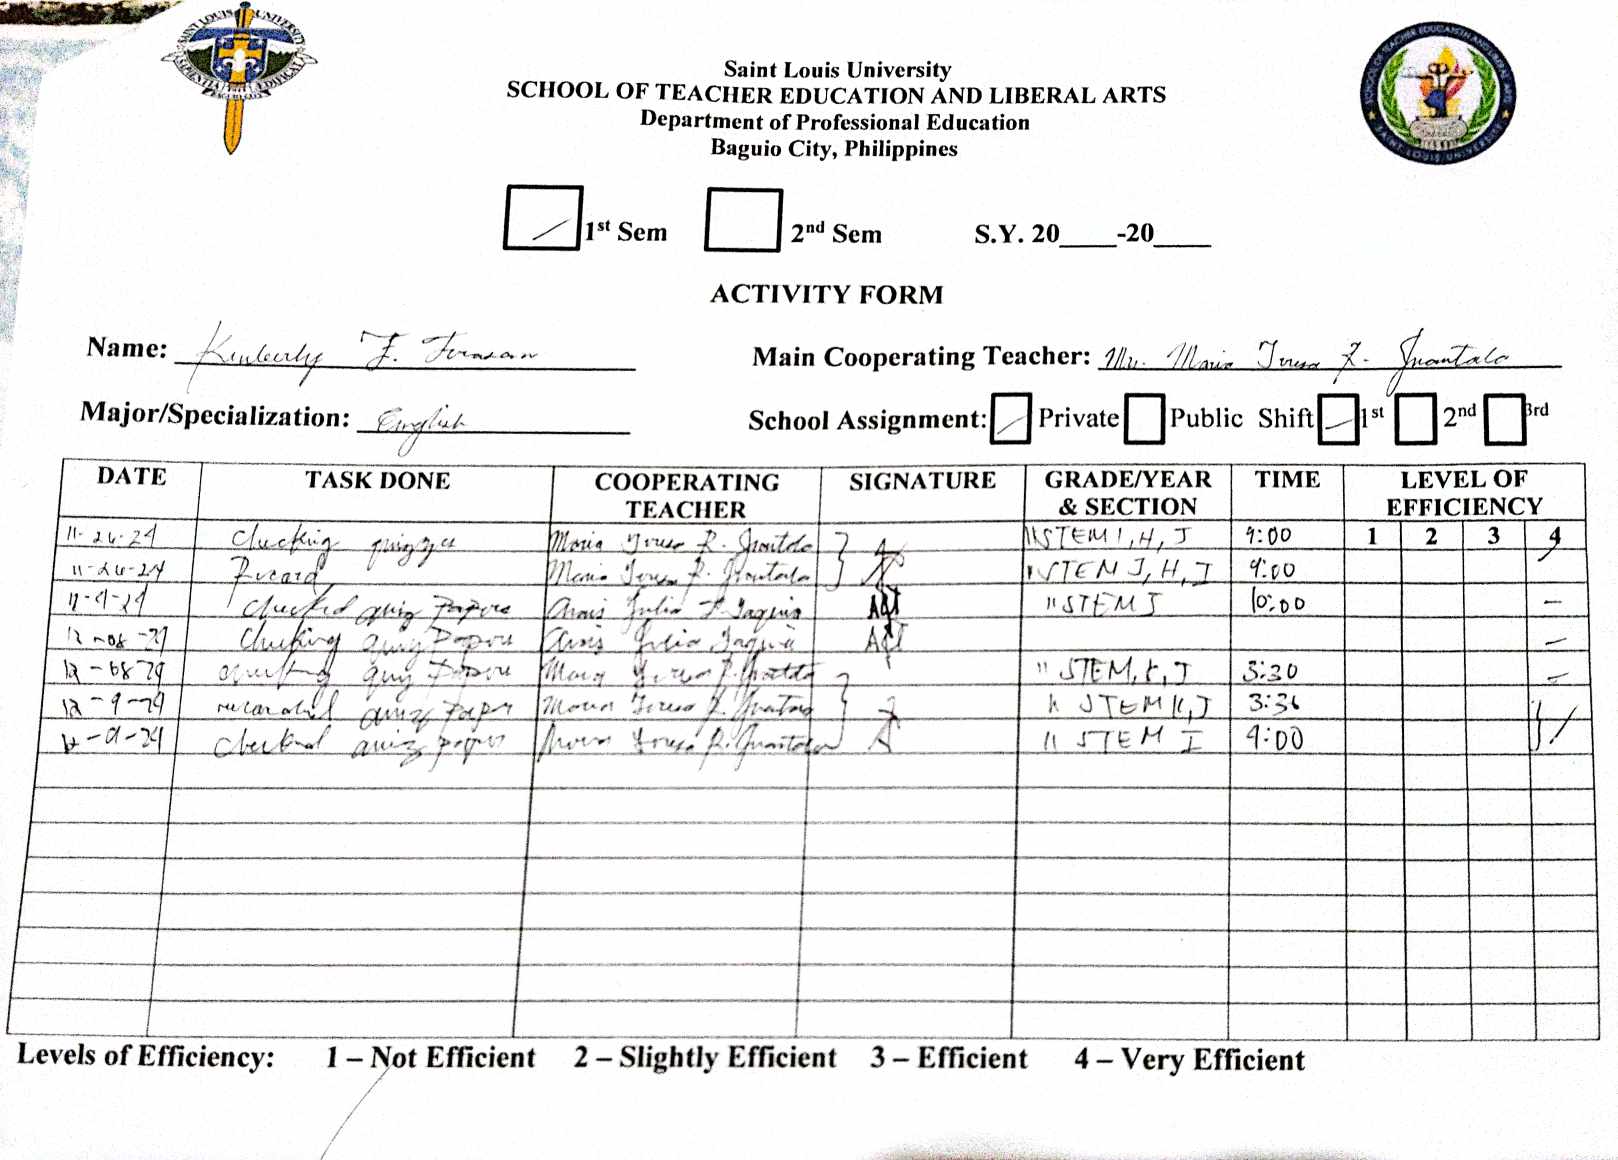 SAINT LOUIS UNIVERSITY
Saint Louis University
SCHOOL OF TEACHER EDUCATION AND LIBERAL ARTS
Department of Professional Education
Baguio City, Philippines
1st Sem 2nd Sem S.Y. 20____-20____
ACTIVITY FORM
Name: Kimberly F. Main Cooperating Teacher: Maria Teresa R.
Major/Specialization: English School Assignment: Private Public Shift 1st 2nd 3rd
DATE TASK DONE COOPERATING TEACHER SIGNATURE GRADE/YEAR & SECTION TIME LEVEL OF EFFICIENCY
1 2 3 4
11-26-24 checking quizzes Maria Teresa R. 11 STEM I, H, J 9:00
11-26-24 Record Maria Teresa R. 11 STEM J, H, I 9:00
checked quiz papers Julia 11 STEM J 10:00
checking quiz papers Julia
checking quiz papers Teresa R. 11 STEM 3:30
12-9-24 quiz paper Teresa R. 11 STEM 3:36
checked quiz papers Teresa R. 11 STEM I 9:00
Levels of Efficiency: 1 – Not Efficient 2 – Slightly Efficient 3 – Efficient 4 – Very Efficient